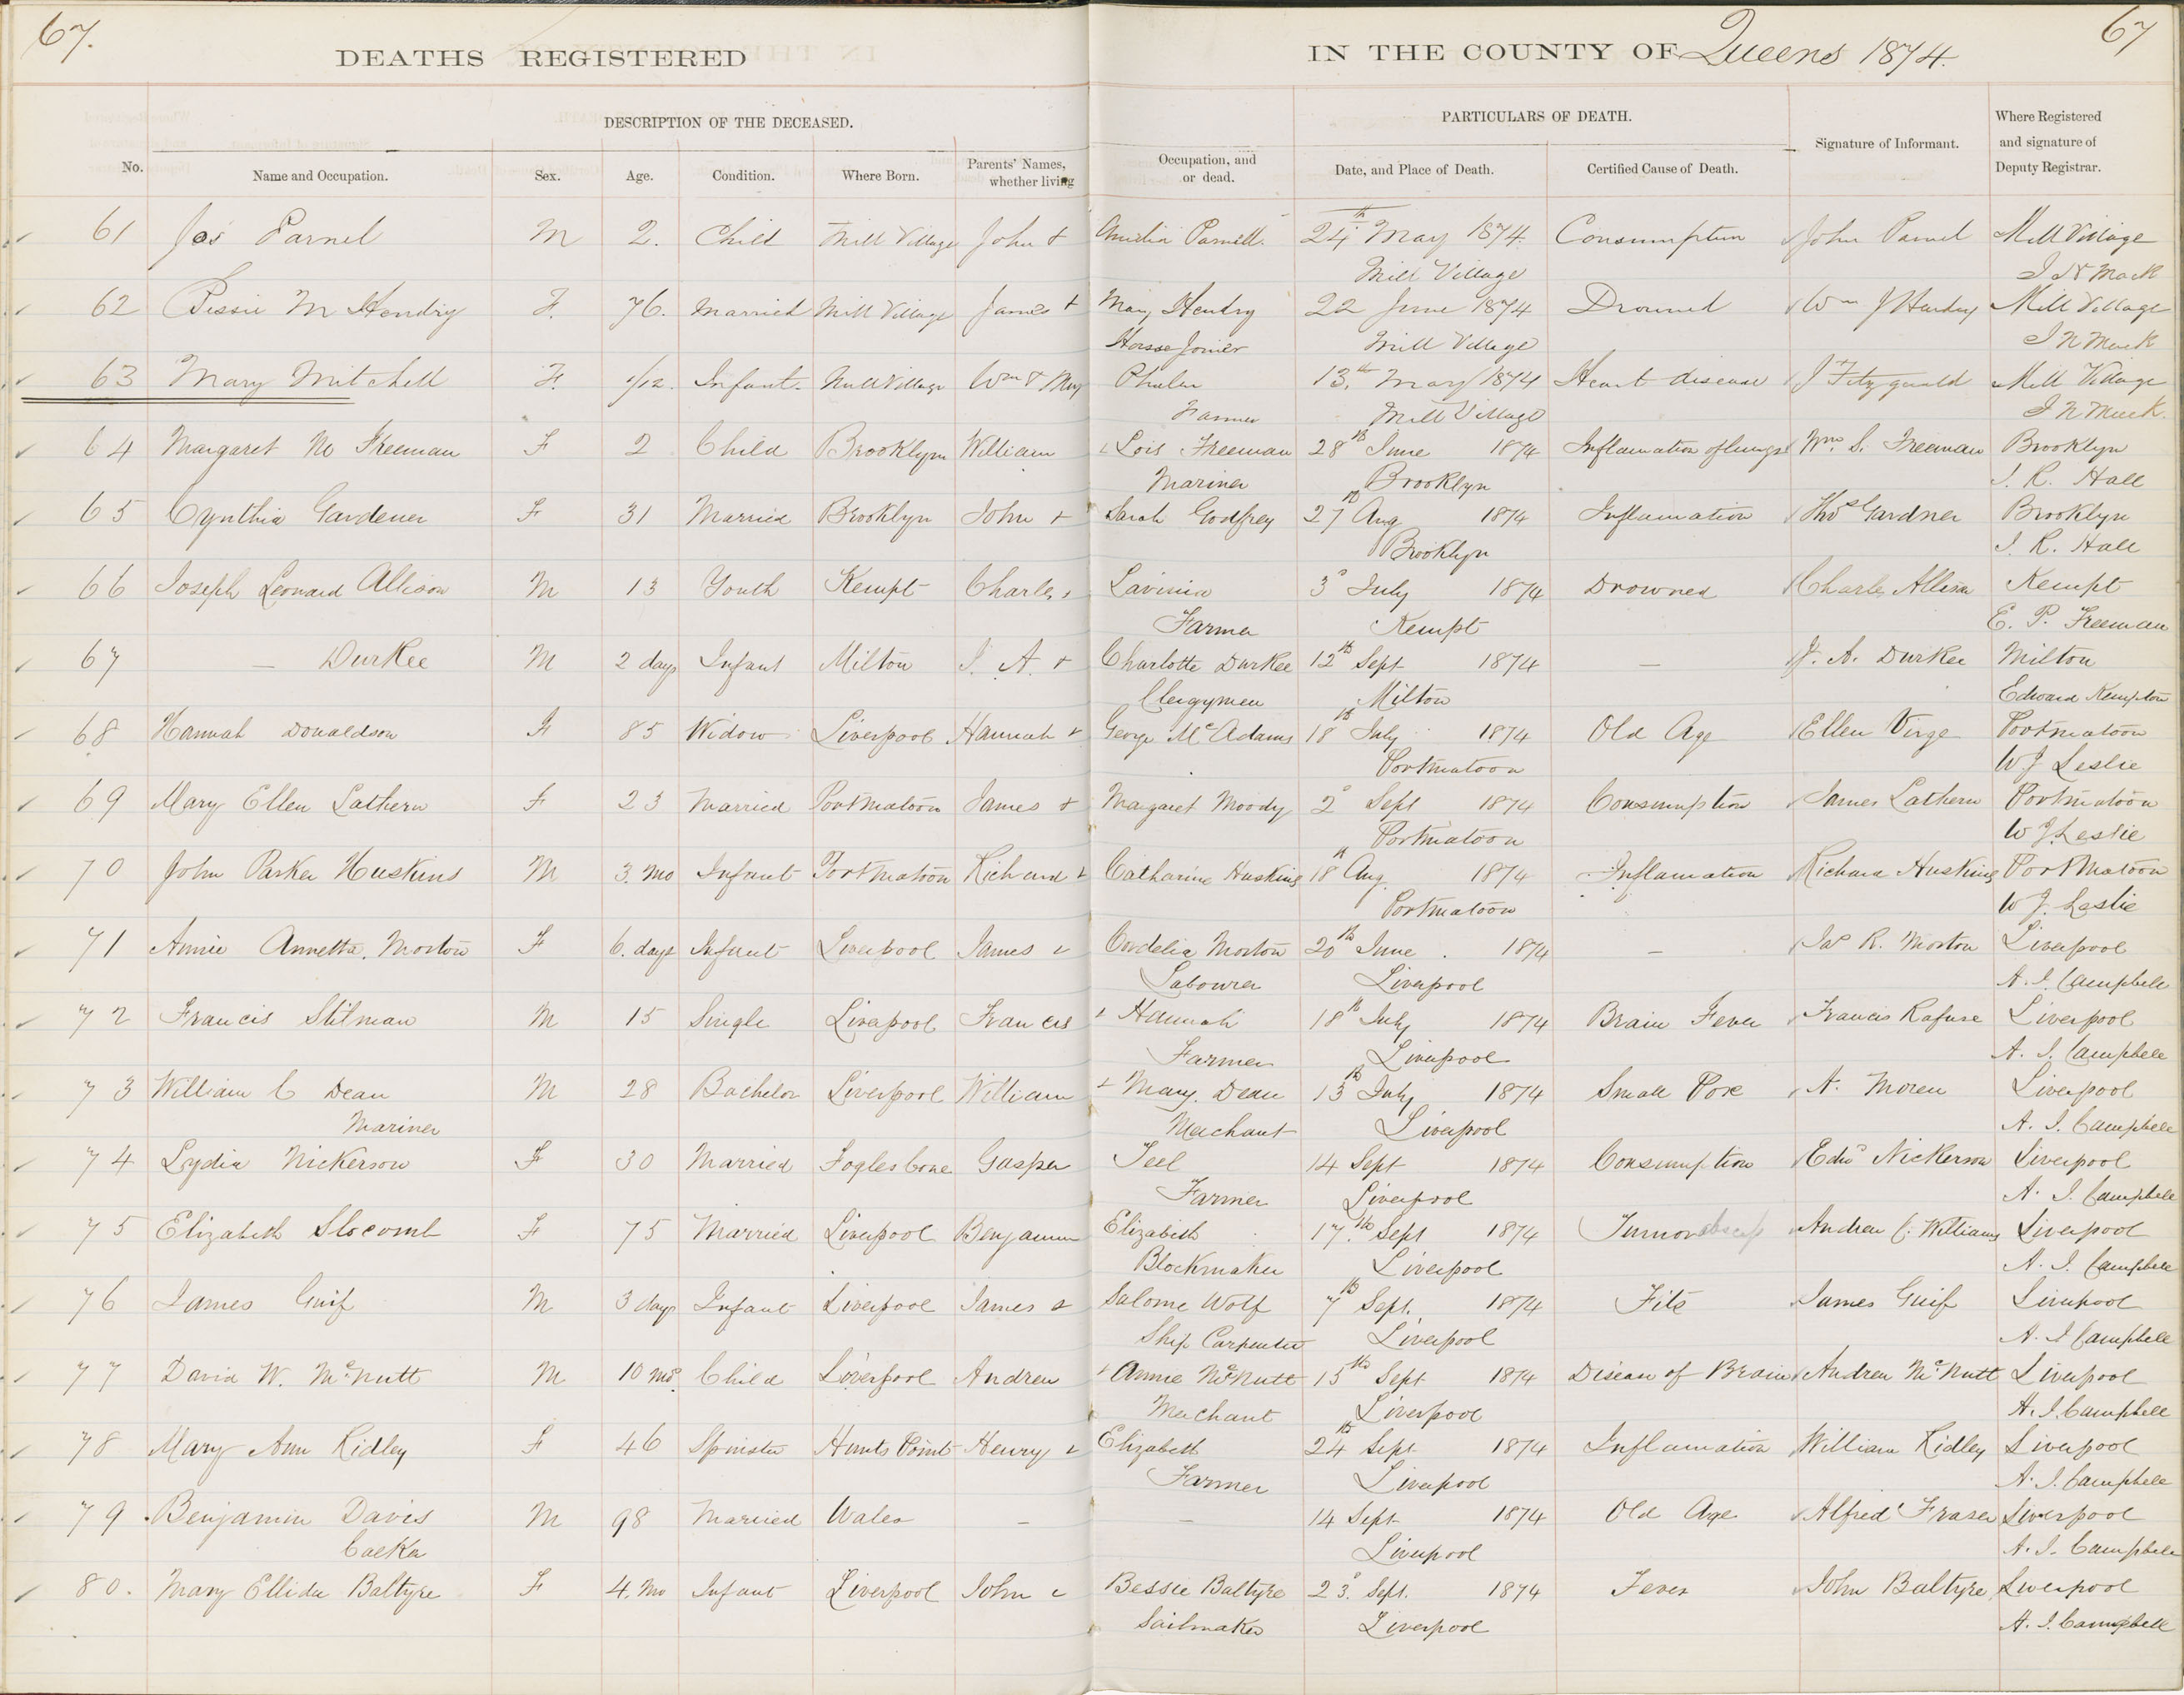 67. 67
DEATHS REGISTERED IN THE COUNTY OF Queens 1874.
DESCRIPTION OF THE DECEASED. PARTICULARS OF DEATH.
No. Name and Occupation. Sex. Age. Condition. Where Born. Parents' Names, whether living Occupation, and or dead. Date, and Place of Death. Certified Cause of Death. Signature of Informant. Where Registered and signature of Deputy Registrar.
61 Jas Parnel M 2. Child Mill Village John & Amelia Parnell. 24th May 1874. Consumption John Parnel Mill Village
Mill Village
62 M Hendry F. 76. Married Mill Village James & Mary Hendry 22 June 1874 Drowned Wm J Hendry Mill Village
House Joiner Mill Village
63 Mary Mitchell F. 1/12. Infant Mill Village Wm & Mary 13th May 1874 Heart disease J Fitzgerald Mill Village
Farmer Mill Village
64 Margaret Mc Freeman F 2 Child Brooklyn William & Lois Freeman 28th June 1874 Inflamation of lungs Wm. S. Freeman Brooklyn
Mariner Brooklyn J. R. Hall
65 Cynthia Gardener F 31 Married Brooklyn John & Sarah Godfrey 27th Aug 1874 Inflamation Thos Gardner Brooklyn
Brooklyn J. R. Hall
66 Joseph Leonard Allison M 13 Youth Kempt Charles & Lavinia 3d July 1874 Drowned Charles Allison Kempt
Farmer Kempt E. P. Freeman
67 — Durkee M 2 days Infant Milton J. A. & Charlotte Durkee 12th Sept 1874 — J. A. Durkee Milton
Clergymen Milton Edward Kempton
68 Hannah Donaldson F 85 Widow Liverpool Hannah & George McAdams 18th July 1874 Old Age Ellen Virge Portmatoon
Portmatoon W J Leslie
69 Mary Ellen Lathern F 23 Married Portmatoon James & Margaret Moody 2d Sept 1874 Consumption James Lathern Portmatoon
Portmatoon W J Leslie
70 John Parker Huskins M 3. mo Infant Portmatoon Richard & Catharine Huskins 18th Aug 1874 Inflamation Richard Huskins Portmatoon
Portmatoon W J. Leslie
71 Annie Annetta. Morton F 6. days Infant Liverpool James & Cordelia Morton 20th June 1874 — Jas R. Morton Liverpool
Labourer Liverpool A. J. Campbell
72 Francis Stilman M 15 Single Liverpool Francis & Hannah 18th July 1874 Brain Fever Francis Rafuse Liverpool
Farmer Liverpool A. J. Campbell
73 William C Dean M 28 Bachelor Liverpool William & Mary. Dean 13th July 1874 Small Pox A. Moren Liverpool
Mariner Merchant Liverpool A. J. Campbell
74 Lydia Nickerson F 30 Married Gasper Teel 14 Sept 1874 Consumption Edwd Nickerson Liverpool
Farmer Liverpool A. J. Campbell
75 Elizabeth Slocomb F 75 Married Liverpool Benjamin Elizabeth 17th Sept 1874 Tumor Andrew C. Williams Liverpool
Blockmaker Liverpool A. J. Campbell
76 James Guif M 3 days Infant Liverpool James & Salome Wolf 7th Sept. 1874 Fits James Guif Liverpool
Ship Carpenter Liverpool A. J Campbell
77 David W. McNutt M 10 mos. Child Liverpool Andrew & Annie McNutt 15th Sept 1874 Disease of Brain Andrew McNutt Liverpool
Merchant Liverpool A. J. Campbell
78 Mary Ann Ridley F 46 Spinster Hunts Point Henry & Elizabeth 24th Sept 1874 Inflamation William Ridley Liverpool
Farmer Liverpool A. J. Campbell
79 Benjamin Davis M 98 Married Wales — — 14 Sept 1874 Old Age Alfred Fraser Liverpool
Liverpool A. J. Campbell
80. Mary Baltyre F 4. Mo Infant Liverpool John & Bessie Baltyre 23d. Sept. 1874 Fever John Baltyre Liverpool
Sailmaker Liverpool A. J. Campbell